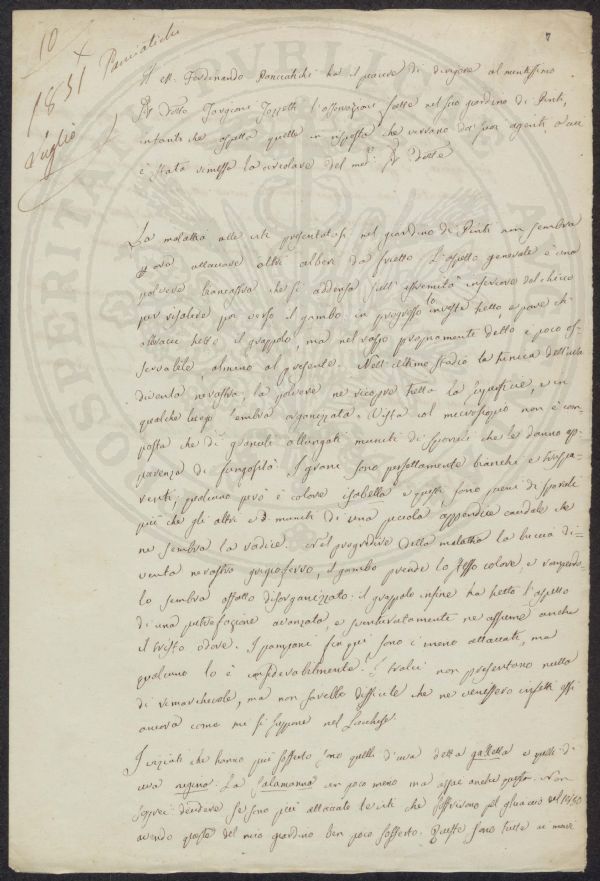 10
1851
Luglio
Panciatichi
7
Il M. Ferdinando Panciatichi ha il piacere di dirigere al meritissimo
Sig. Dott. Targioni Tozzetti l'osservazioni fatte nel suo giardino di Pinti,
intanto che aspetta quelle in risposta che verrano da' suoi agenti a cui
è stata rimessa la circolare del med. Sig. Dott.
La malattia alle viti presentatasi nel giardino di Pinti non sembra
ora attaccare altri alberi da frutto. L'aspetto generale è una
polvere biancastra che si addensa sull'estremità inferiore del chicco
per risalire poi verso il gambo: in progresso lo investe tutto e pare ch'
abbracci tutto il grappolo, ma nel raspo propriamente detto è poco os-
servabile almeno al presente. Nell'ultimo stadio la tunica dell'uva
diventa nerastra, la polvere ne ricopre tutta la superficie, e in
qualche luogo sembra organizzata. Vista col microscopio non è com-
posta che di granuli allungati muniti di sporuli che le danno ap-
parenza di fungosità. I grani sono perfettamente bianchi e traspa-
renti; qualcuno però è colore isabella e questi sono pieni di sporuli
più che gli altri e muniti di una piccola appendice caudale che
ne sembra la radice. Nel progredire della malattia la buccia di-
venta nerastra grigioferro, il gambo prende lo stesso colore, e rompendo-
lo sembra affatto disorganizzato: il grappolo infine ha tutto l'aspetto
di una putrefazione avanzata, e sventuratamente ne assume anche
il tristo odore. I pampani fin qui sono i meno attaccati, ma
qualcuno lo è considerabilmente. I tralci non presentano nulla
di rimarchevole, ma non sarebbe difficile che ne venissero infetti essi
ancora come mi si suppone nel Lucchese.
I vizziati che hanno più sofferto sono quelli d'uva detta galletta e quelli di
uva regina. La salamanna un poco meno ma assai anche questa. Non
saprei decidere se sono più attaccate le viti che soffrirono pel ghiaccio nel 1849/50
avendo queste del mio giardino ben poco sofferto. Queste sono tutte ai muri